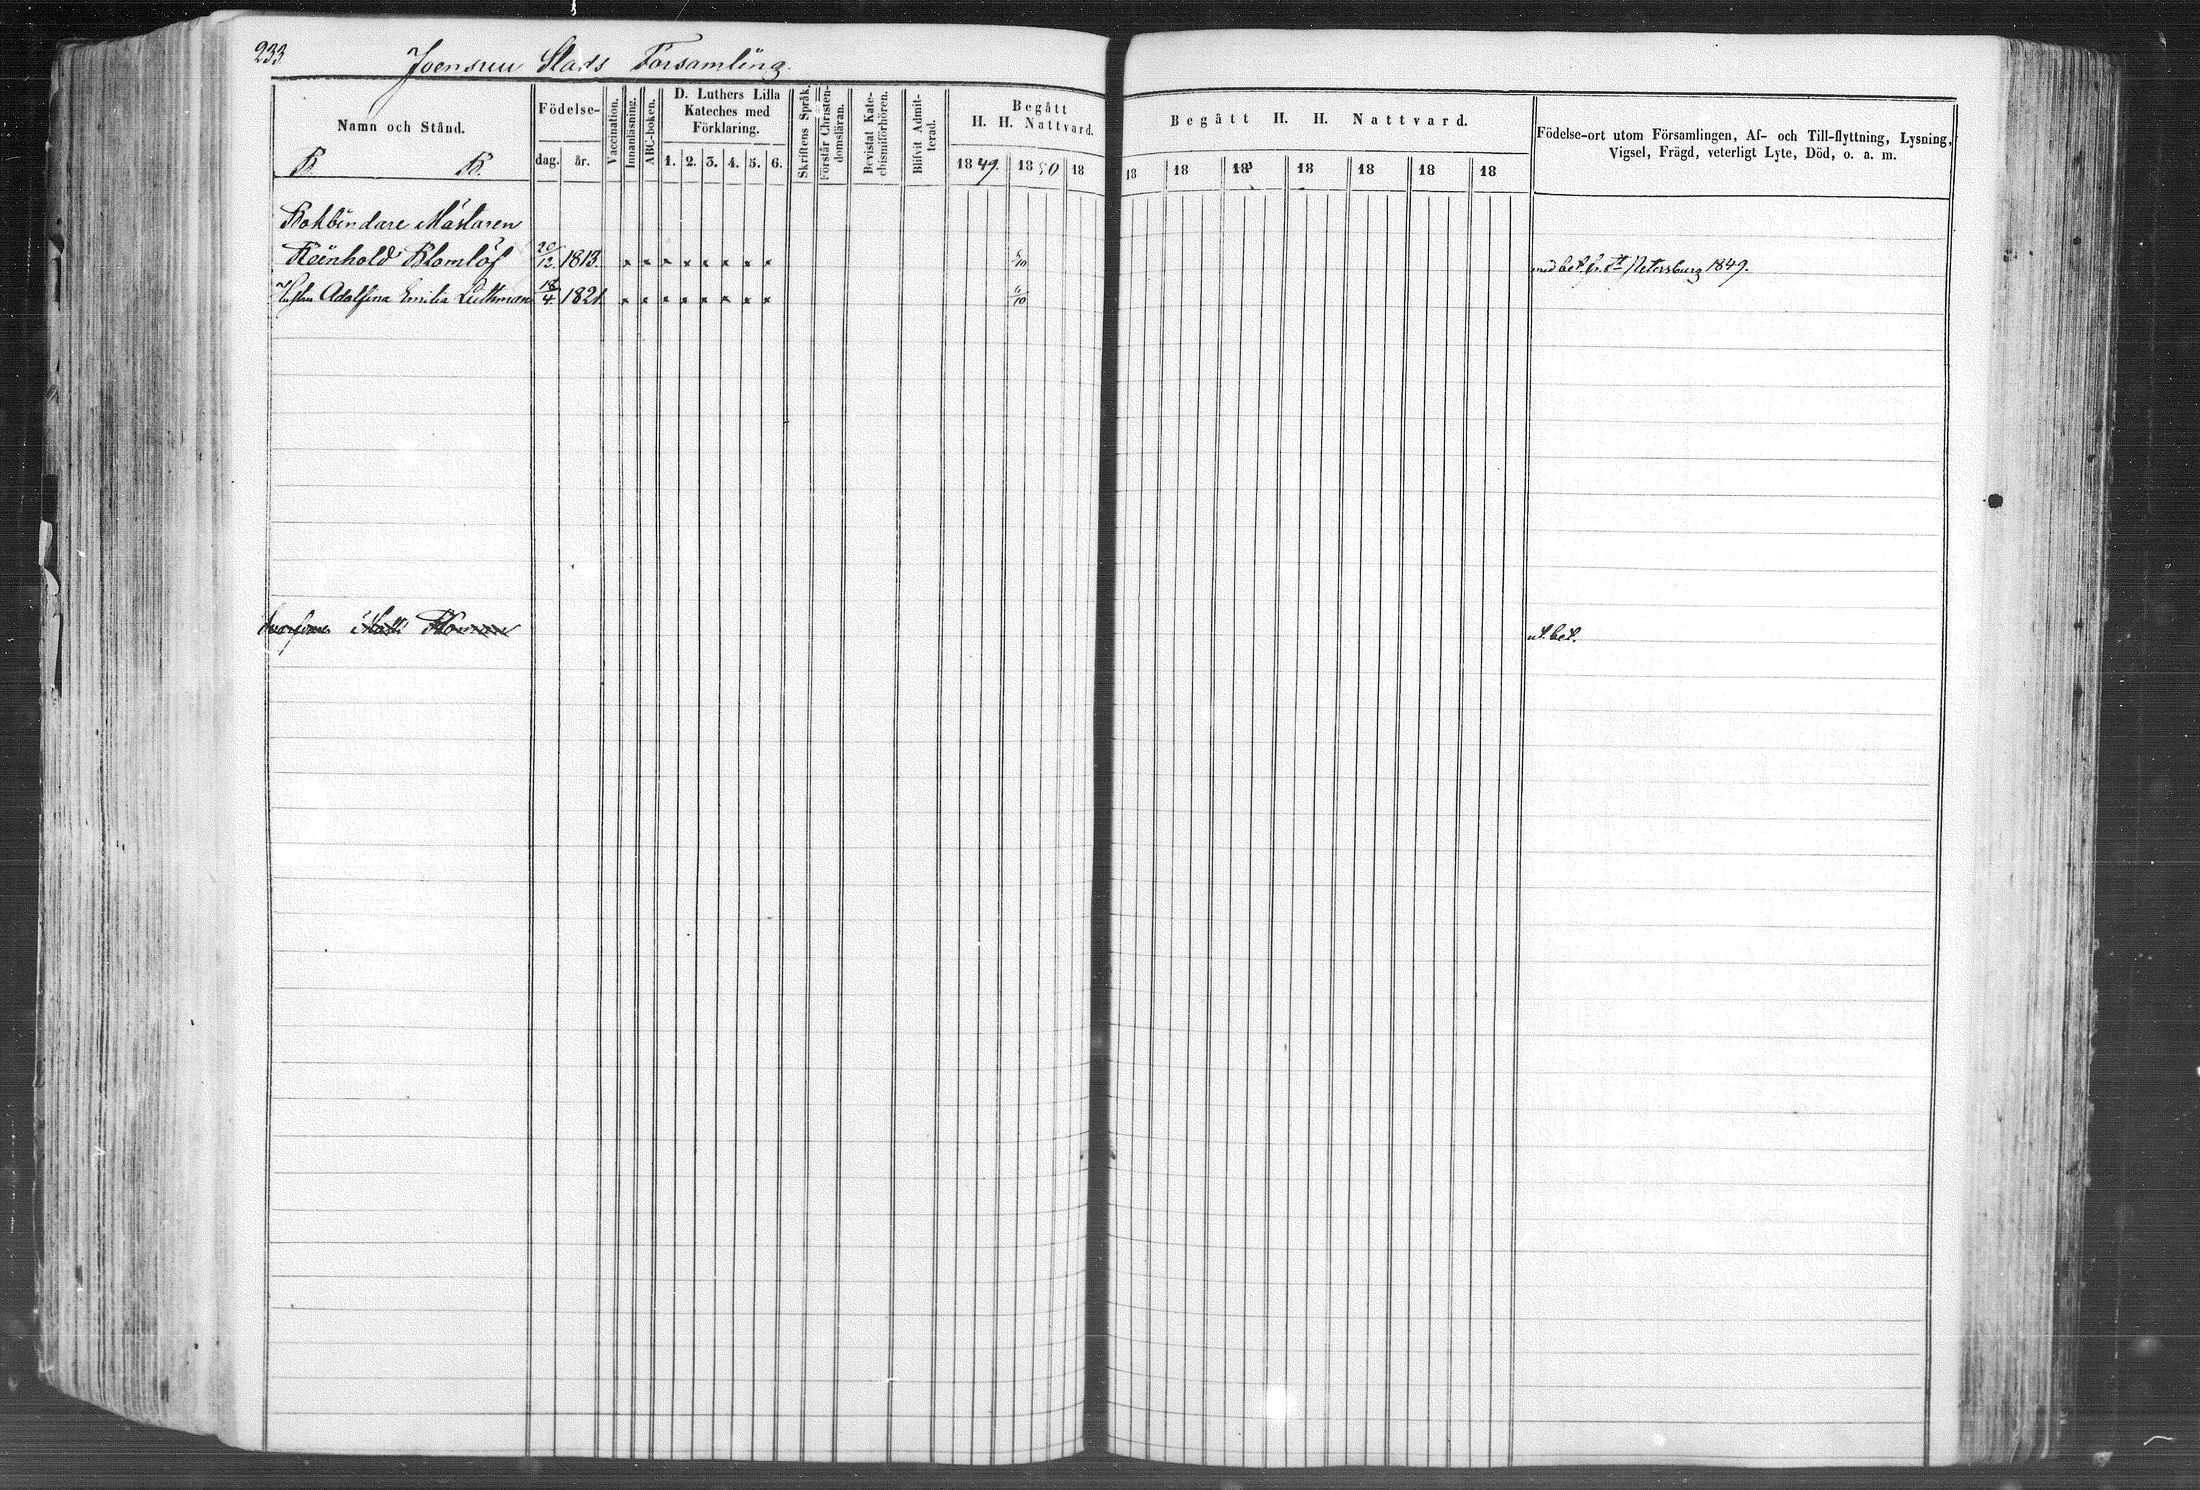 233
Joensuu Stads Församling.
Namn och Stånd.
B. B.
Födelse-
dag. år.
Vaccination.
Innanläsning.
ABC-boken.
D. Luthers Lilla
Kateches med
Förklaring.
1. 2. 3. 4. 5. 6.
Skriftens Språk.
Förstår Christen-
domsläran.
Bevistat Kate-
chismiförhören.
Blifvit Admit-
terad.
Begått
H. H. Nattvard.
1849. 1850 18
Begått H. H. Nattvard.
18 18 18 18 18 18 18
Födelse-ort utom Församlingen, Af- och Till-flyttning, Lysning,
Vigsel, Frägd, veterligt Lyte, Död, o. a. m.
Bokbindare Mästaren
Reinhold Blomlöf 20/12 1813. 6/10 med bet. fr. St Petersburg 1849.
Hustru Adolfina Emilia Luthman 18/4 1821. 6/10
Matti Bloman ut. bet.